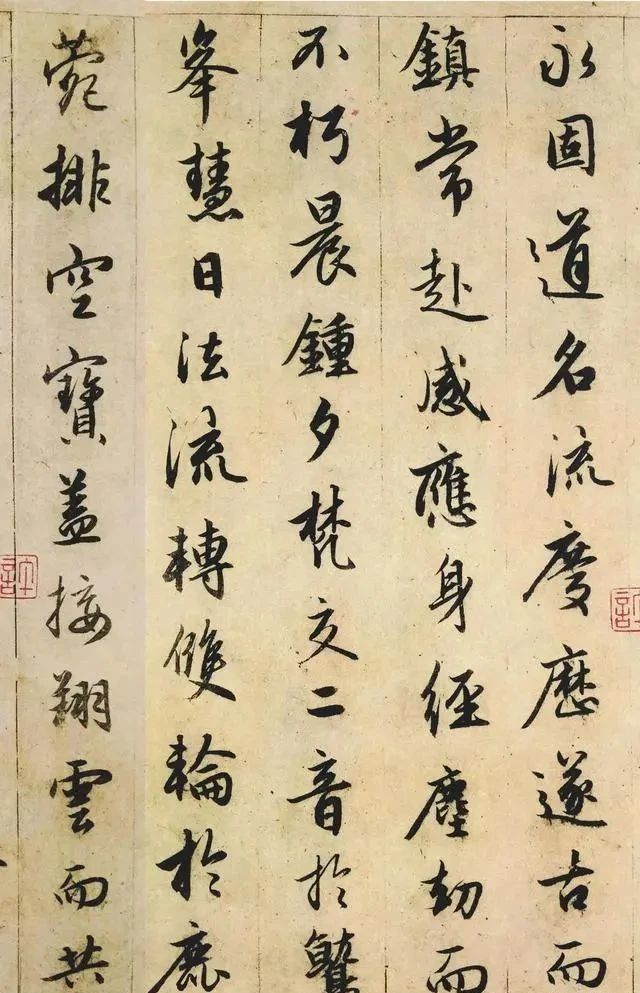 永固道名流慶歷遂古而
鎮常赴感應身經塵劫而
不朽晨鍾夕梵交二音於鷲
峯慧日法流轉雙輪於鹿
菀排空寶蓋接翔雲而共